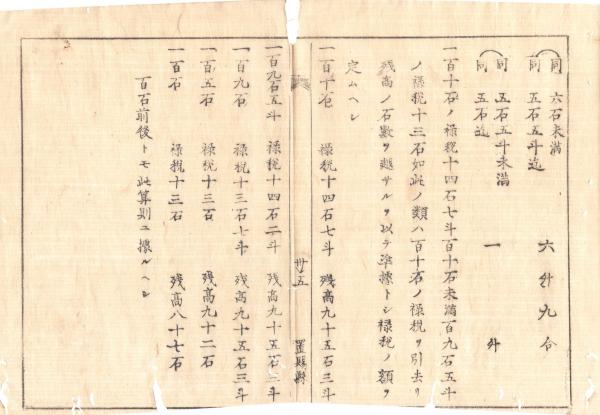 同 六石未満
同 五石五斗迄 六升九合
同 五石五斗未満
同 五石迄 一升
一百十石ノ禄税十四石七斗百十石未満百九石五斗
ノ禄税十三石如此ノ類ハ百十石ノ禄税ヲ引去リ
残高ノ石数ヲ越サルヲ以テ準據トシ禄税ノ額ヲ
定ムヘシ
一百十石 禄税十四石七斗 残高九十五石三斗
卅五 置賜縣
一百九石五斗 禄税十四石二斗 残高九十五石三斗
一百九石 禄税十三石七斗 残高九十五石三斗
一百五石 禄税十三百 残高九十二石
一百石 禄税十三石 残高八十七石
百石前後トモ此算則ニ據ルヘシ